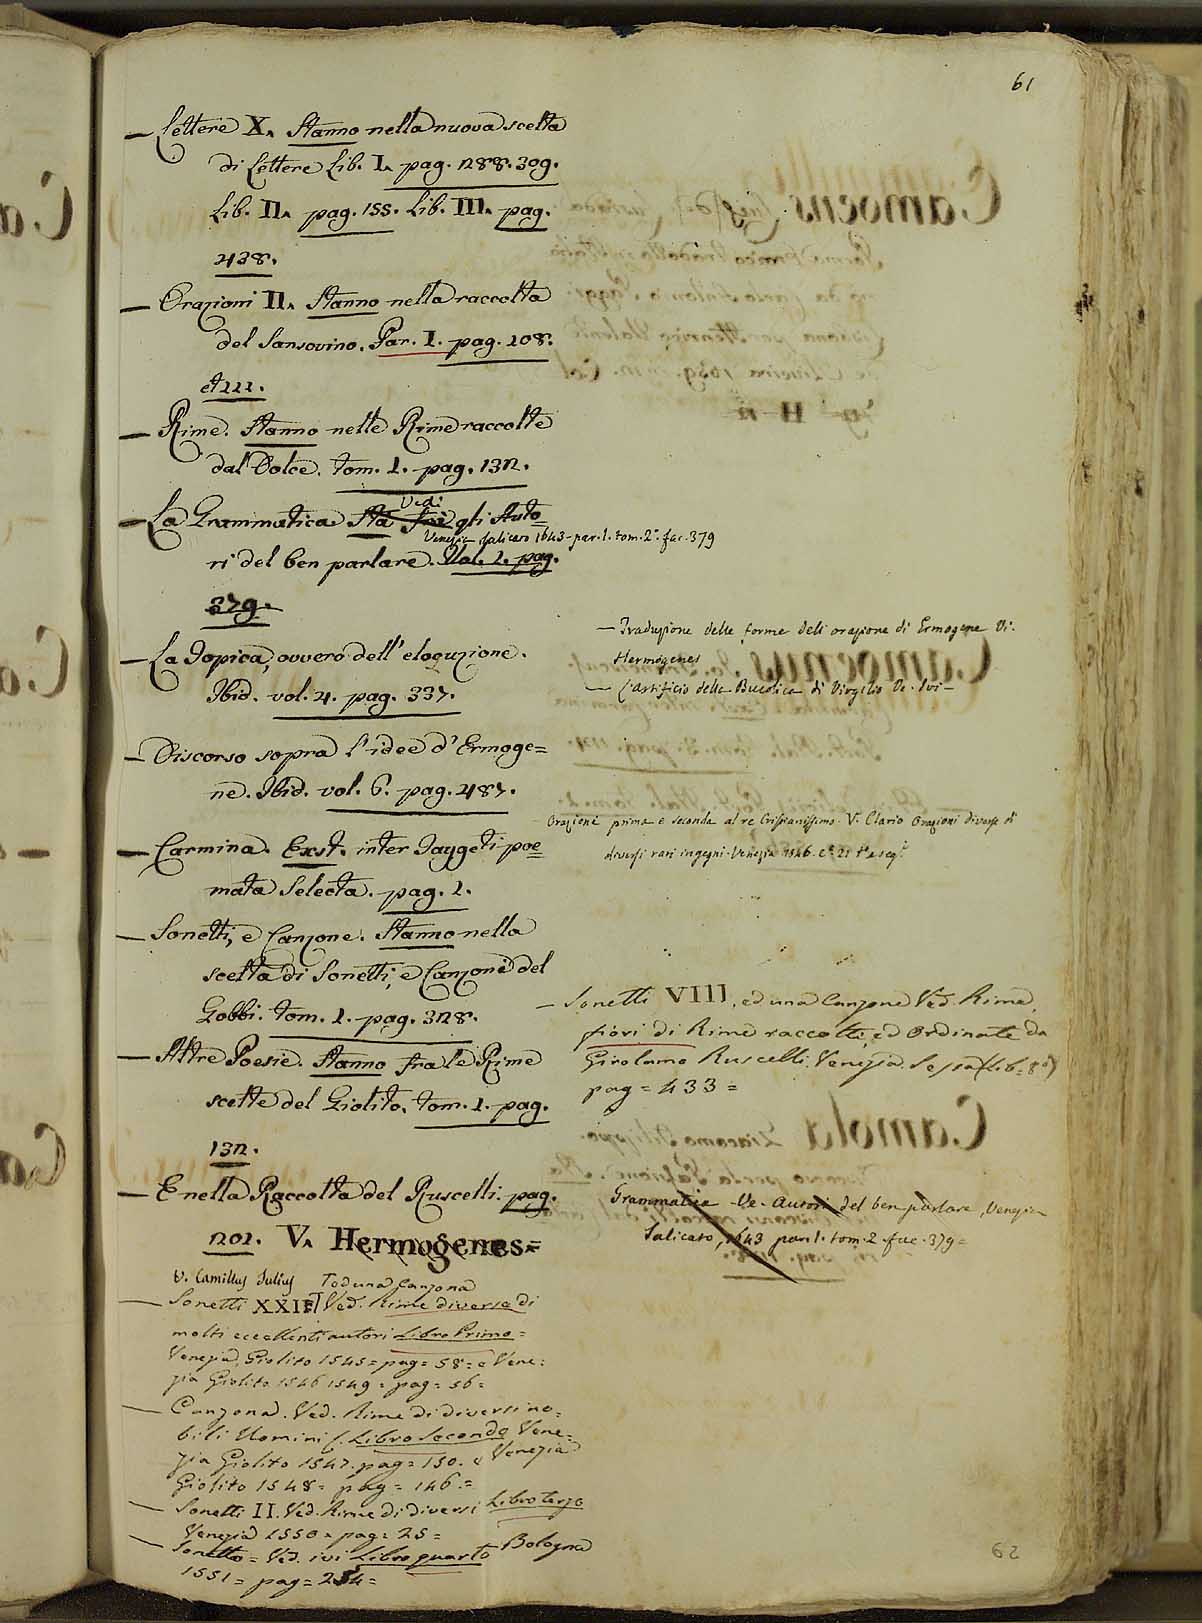 61
— Lettere X. Stanno nella nuova scelta
di Lettere Lib. I. pag. 288. 309.
Lib. II. pag. 155. Lib. III. pag.
428.
— Orazioni II. Stanno nella raccolta
del Sansovino. Par. I. pag. 108.
et 111.
— Rime. Stanno nelle Rime raccolte
dal Dolce. tom. 1. pag. 132.
Vedi
— La Grammatica Sta fra gli Auto=
Venezia Salicato 1643 - par. 1. tom. 2.° fac. 379
ri del ben parlare. Vol. 2. pag.
379.
— La Topica, ovvero dell'elocuzione.
Ibid. vol. 4. pag. 337.
— Discorso sopra l'idee d'Ermoge=
ne. Ibid. vol. 6. pag. 487.
— Carmina. Exst. inter Taygeti poe=
mata Selecta. pag. 1.
— Sonetti, e Canzone. Stanno nella
scelta di Sonetti, e Canzoni del
Gobbi. tom. 1. pag. 328.
— Altre Poesie. Stanno fra le Rime
scelte del Giolito. tom. 1. pag.
132.
— E nella Raccolta del Ruscelli. pag.
201. V. Hermogenes=
v. Camillus Julius
ed una Canzona
— Sonetti XXII Ved. Rime diverse di
molti eccellenti autori Libro Primo=
Venezia, Giolito 1545= pag= 58= e Vene:
zia Giolito 1546 1549= pag= 56=
— Canzona. Ved. Rime di diversi no=
bili Uomini Libro Secondo Vene=
zia Giolito 1547. pag= 130. e Venezia
Giolito 1548= pag= 146.=
— Sonetti II. Ved. Rime di diversi Libro terzo
Venezia 1550= pag= 25=
— Sonetto= Ved. ivi Libro quarto Bologna
1551= pag= 254=
— Traduzione delle forme dell'orazione di Ermogene Vi.
Hermogenes
— L'artificio della Bucolica di Virgilio Ve. Ivi—
Orazione prima e seconda al re Cristianissimo. V. Clario Orazioni diverse di
diversi rari ingegni. Venezia 1546. c. 21
— Sonetti VIII, ed una Canzone Ved. Rime,
fiori di Rime raccolte, ed Ordinate da
Girolamo Ruscelli. Venezia. Sessa (Lib. 8°)
pag= 433=
Grammatica Ve. Autori del ben parlare, Venezia
Salicato, 1643 par. 1. tom. 2. fac. 379=
62